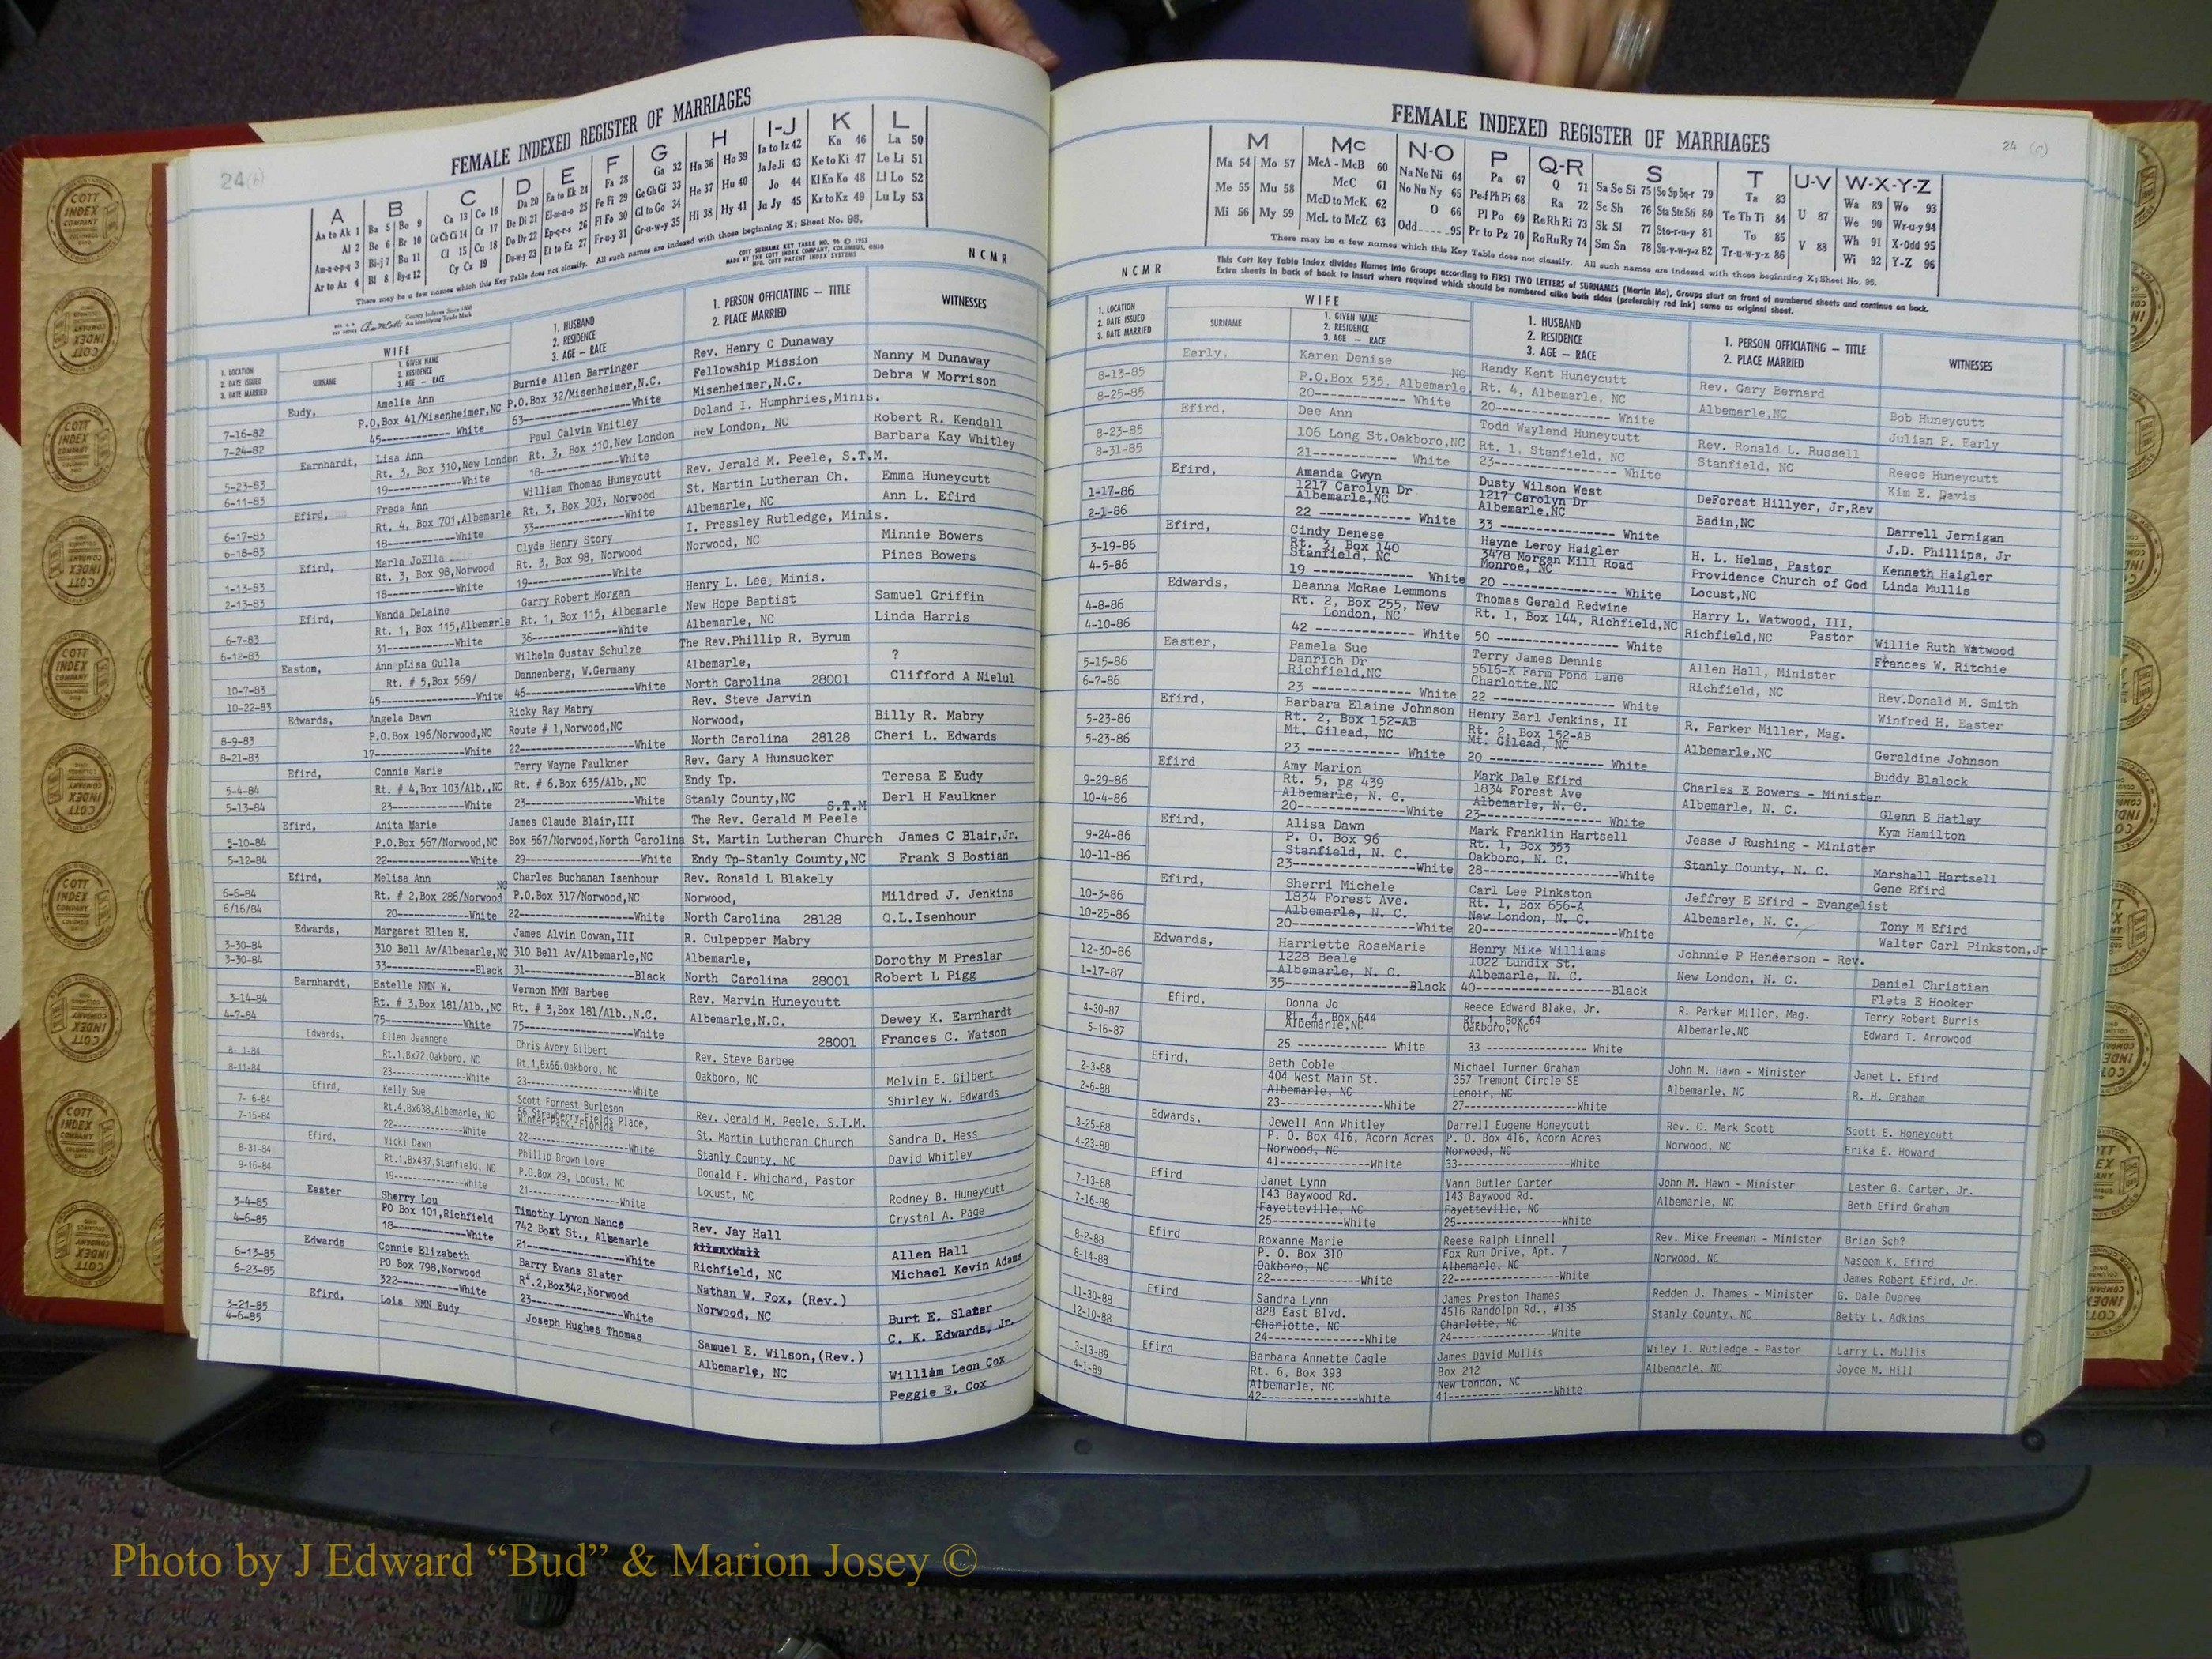 24(b)
FEMALE INDEXED REGISTER OF MARRIAGES
A B C D E F G H I-J K L
Aa to Ak 1 Ba 5 Bo 9 Ca 13 Co 16 Da 20 Ea to Ek 24 Fa 28 Ga 32 Ha 36 Ho 39 Ia to Iz 42 Ka 46 La 50
Al 2 Be 6 Br 10 Ce Ch Ci 14 Cr 17 De Di 21 El-m-n-o 25 Fe Fi 29 Ge Gh Gi 33 He 37 Hu 40 Ja Je Ji 43 Ke to Ki 47 Le Li 51
Am-n-o-p-q 3 Bi-j 7 Bu 11 Cl 15 Cu 18 Do Dr 22 Ep-q-r-s 26 Fl Fo 30 Gl to Go 34 Hi 38 Hy 41 Jo 44 Kl Kn Ko 48 Ll Lo 52
Ar to Az 4 Bl 8 By-z 12 Cy Cz 19 Du-w-y 23 Et to Ez 27 Fr-u-y 31 Gr-u-w-y 35 Ju Jy 45 Kr to Kz 49 Lu Ly 53
There may be a few names which this Key Table does not classify. All such names are indexed with those beginning X; Sheet No. 95.
COTT SURNAME KEY TABLE NO. 96 © 1952
MADE BY THE COTT INDEX COMPANY, COLUMBUS, OHIO
MFG. COTT PATENT INDEX SYSTEMS
County Indexes Since 1888
An Identifying Trade Mark
NCMR
1. LOCATION
2. DATE ISSUED
3. DATE MARRIED
WIFE
SURNAME
1. GIVEN NAME
2. RESIDENCE
3. AGE — RACE
1. HUSBAND
2. RESIDENCE
3. AGE — RACE
1. PERSON OFFICIATING — TITLE
2. PLACE MARRIED
WITNESSES
Eudy, Amelia Ann Burnie Allen Barringer Rev. Henry C Dunaway Nanny M Dunaway
7-16-82 P.O.Box 41/Misenheimer,NC P.O.Box 32/Misenheimer,N.C. Fellowship Mission Debra W Morrison
7-24-82 45------------ White 63-----------------White Misenheimer,N.C.
Earnhardt, Lisa Ann Paul Calvin Whitley Doland I. Humphries,Minis. Robert R. Kendall
5-23-83 Rt. 3, Box 310,New London Rt. 3, Box 310,New London New London, NC Barbara Kay Whitley
6-11-83 19-------------White 18--------------White
Efird, Freda Ann William Thomas Huneycutt Rev. Jerald M. Peele, S.T.M. Emma Huneycutt
6-17-83 Rt. 4, Box 701,Albemarle Rt. 3, Box 303, Norwood St. Martin Lutheran Ch. Ann L. Efird
6-18-83 18-------------White 33--------------White Albemarle, NC
Efird, Marla JoElla Clyde Henry Story I. Pressley Rutledge, Minis. Minnie Bowers
1-13-83 Rt. 3, Box 98,Norwood Rt. 3, Box 98, Norwood Norwood, NC Pines Bowers
2-13-83 18-------------White 19--------------White
Efird, Wanda DeLaine Garry Robert Morgan Henry L. Lee, Minis. Samuel Griffin
6-7-83 Rt. 1, Box 115,Albemarle Rt. 1, Box 115, Albemarle New Hope Baptist Linda Harris
6-12-83 31-------------White 36--------------White Albemarle, NC
Eastom, Ann pLisa Gulla Wilhelm Gustav Schulze The Rev.Phillip R. Byrum ?
10-7-83 Rt. # 5,Box 569/ Dannenberg, W.Germany Albemarle, Clifford A Nielul
10-22-83 45-----------------White 46-----------------White North Carolina 28001
Edwards, Angela Dawn Ricky Ray Mabry Rev. Steve Jarvin Billy R. Mabry
8-9-83 P.O.Box 196/Norwood,NC Route # 1,Norwood,NC Norwood, Cheri L. Edwards
8-21-83 17---------------White 22-----------------White North Carolina 28128
Efird, Connie Marie Terry Wayne Faulkner Rev. Gary A Hunsucker Teresa E Eudy
5-4-84 Rt. # 4,Box 103/Alb.,NC Rt. # 6.Box 635/Alb.,NC Endy Tp. Derl H Faulkner
5-13-84 23-------------White 23-----------------White Stanly County,NC S.T.M
Efird, Anita Marie James Claude Blair,III The Rev. Gerald M Peele
5-10-84 P.O.Box 567/Norwood,NC Box 567/Norwood,North Carolina St. Martin Lutheran Church James C Blair,Jr.
5-12-84 22-------------White 29-----------------White Endy Tp-Stanly County,NC Frank S Bostian
Efird, Melisa Ann NC Charles Buchanan Isenhour Rev. Ronald L Blakely
6-6-84 Rt. # 2,Box 286/Norwood P.O.Box 317/Norwood,NC Norwood, Mildred J. Jenkins
6/16/84 20-------------White 22-----------------White North Carolina 28128 Q.L.Isenhour
Edwards, Margaret Ellen H. James Alvin Cowan,III R. Culpepper Mabry
3-30-84 310 Bell Av/Albemarle,NC 310 Bell Av/Albemarle,NC Albemarle, Dorothy M Preslar
3-30-84 33---------------Black 31-----------------Black North Carolina 28001 Robert L Pigg
Earnhardt, Estelle NMN W. Vernon NMN Barbee Rev. Marvin Huneycutt
3-14-84 Rt. # 3,Box 181/Alb.,NC Rt. # 3,Box 181/Alb.,N.C. Albemarle,N.C. Dewey K. Earnhardt
4-7-84 75-------------White 75-----------------White 28001 Frances C. Watson
Edwards, Ellen Jeannene Chris Avery Gilbert Rev. Steve Barbee
8- 1-84 Rt.1,Bx72,Oakboro, NC Rt.1,Bx66,Oakboro, NC Oakboro, NC Melvin E. Gilbert
8-11-84 23-------------White 23-----------------White Shirley W. Edwards
Efird, Kelly Sue Scott Forrest Burleson Rev. Jerald M. Peele, S.T.M.
7- 6-84 Rt.4,Bx638,Albemarle, NC 56 Strawberry Fields Place, St. Martin Lutheran Church Sandra D. Hess
7-15-84 22-------------White Winter Park, Florida Stanly County, NC David Whitley
22-----------------White
Efird, Vicki Dawn Phillip Brown Love Donald F. Whichard, Pastor
8-31-84 Rt.1,Bx437,Stanfield, NC P.O.Box 29, Locust, NC Locust, NC Rodney B. Huneycutt
9-16-84 19-------------White 21-----------------White Crystal A. Page
Easter Sherry Lou Timothy Lyvon Nance Rev. Jay Hall
3-4-85 PO Box 101,Richfield 742 Bost St., Albemarle Allen Hall
4-6-85 18-------------White 21-----------------White Richfield, NC Michael Kevin Adams
Edwards Connie Elizabeth Barry Evans Slater Nathan W. Fox, (Rev.)
6-13-85 PO Box 798,Norwood Rt.2,Box342,Norwood Norwood, NC Burt E. Slater
6-23-85 322-----------White 23-----------------White C. K. Edwards, Jr.
Efird, Lois NMN Eudy Joseph Hughes Thomas Samuel E. Wilson,(Rev.) William Leon Cox
3-21-85 Albemarle, NC Peggie E. Cox
4-6-85
24 (c)
FEMALE INDEXED REGISTER OF MARRIAGES
M Mc N-O P Q-R S T U-V W-X-Y-Z
Ma 54 Mo 57 McA - McB 60 Na Ne Ni 64 Pa 67 Q 71 Sa Se Si 75 So Sp Sq-r 79 Ta 83 U 87 Wa 89 Wo 93
Me 55 Mu 58 McC 61 No Nu Ny 65 Pe-f Ph Pi 68 Ra 72 Sc Sh 76 Sta Ste Sti 80 Te Th Ti 84 V 88 We 90 Wr-u-y 94
Mi 56 My 59 McD to McK 62 O 66 Pl Po 69 Re Rh Ri 73 Sk Sl 77 Sto-r-u-y 81 To 85 Wh 91 X-Odd 95
McL to McZ 63 Odd-----95 Pr to Pz 70 Ro Ru Ry 74 Sm Sn 78 Su-v-w-y-z 82 Tr-u-w-y-z 86 Wi 92 Y-Z 96
There may be a few names which this Key Table does not classify. All such names are indexed with those beginning X; Sheet No. 95.
This Cott Key Table Index divides Names into Groups according to FIRST TWO LETTERS of SURNAMES (Martin Ma), Groups start on front of numbered sheets and continue on back.
Extra sheets in back of book to insert where required which should be numbered alike both sides (preferably red ink) same as original sheet.
NCMR
1. LOCATION
2. DATE ISSUED
3. DATE MARRIED
WIFE
SURNAME
1. GIVEN NAME
2. RESIDENCE
3. AGE — RACE
1. HUSBAND
2. RESIDENCE
3. AGE — RACE
1. PERSON OFFICIATING — TITLE
2. PLACE MARRIED
WITNESSES
Early, Karen Denise NC Randy Kent Huneycutt Rev. Gary Bernard
8-13-85 P.O.Box 535, Albemarle, Rt. 4, Albemarle, NC Albemarle,NC Bob Huneycutt
8-25-85 20------------ White 20--------------- White Julian P. Early
Efird, Dee Ann Todd Wayland Huneycutt Rev. Ronald L. Russell
8-23-85 106 Long St.Oakboro,NC Rt. 1, Stanfield, NC Stanfield, NC Reece Huneycutt
8-31-85 21----------- White 23--------------- White Kim E. Davis
Efird, Amanda Gwyn Dusty Wilson West DeForest Hillyer, Jr,Rev
1-17-86 1217 Carolyn Dr 1217 Carolyn Dr Badin,NC Darrell Jernigan
2-1-86 Albemarle,NC Albemarle,NC J.D. Phillips, Jr
22 ------------ White 33 --------------- White
Efird, Cindy Denese Hayne Leroy Haigler H. L. Helms, Pastor Kenneth Haigler
3-19-86 Rt. 3, Box 140 3478 Morgan Mill Road Providence Church of God Linda Mullis
4-5-86 Stanfield, NC Monroe, NC Locust,NC
19 ------------ White 20 --------------- White
Edwards, Deanna McRae Lemmons Thomas Gerald Redwine Harry L. Watwood, III,
4-8-86 Rt. 2, Box 255, New Rt. 1, Box 144, Richfield,NC Richfield,NC Pastor Willie Ruth Watwood
4-10-86 London, NC Frances W. Ritchie
42 ------------ White 50 --------------- White
Easter, Pamela Sue Terry James Dennis Allen Hall, Minister
5-15-86 Danrich Dr 5616-K Farm Pond Lane Richfield, NC Rev.Donald M. Smith
6-7-86 Richfield,NC Charlotte,NC Winfred H. Easter
23 ------------ White 22 --------------- White
Efird, Barbara Elaine Johnson Henry Earl Jenkins, II R. Parker Miller, Mag.
5-23-86 Rt. 2, Box 152-AB Rt. 2, Box 152-AB Albemarle,NC Geraldine Johnson
5-23-86 Mt. Gilead, NC Mt. Gilead, NC Buddy Blalock
23 ------------ White 20 --------------- White
Efird Amy Marion Mark Dale Efird Charles E Bowers - Minister
9-29-86 Rt. 5, pg 439 1834 Forest Ave Albemarle, N. C. Glenn E Hatley
10-4-86 Albemarle, N. C. Albemarle, N. C. Kym Hamilton
20---------------White 23--------------- White
Efird, Alisa Dawn Mark Franklin Hartsell Jesse J Rushing - Minister
9-24-86 P. O. Box 96 Rt. 1, Box 353 Stanly County, N. C. Marshall Hartsell
10-11-86 Stanfield, N. C. Oakboro, N. C. Gene Efird
23----------------White 28-----------------White
Efird, Sherri Michele Carl Lee Pinkston Jeffrey E Efird - Evangelist
10-3-86 1834 Forest Ave. Rt. 1, Box 656-A Albemarle, N. C. Tony M Efird
10-25-86 Albemarle, N. C. New London, N. C. Walter Carl Pinkston,Jr
20----------------White 20-----------------White
Edwards, Harriette RoseMarie Henry Mike Williams Johnnie P Henderson - Rev.
12-30-86 1228 Beale 1022 Lundix St. New London, N. C. Daniel Christian
1-17-87 Albemarle, N. C. Albemarle, N. C. Fleta E Hooker
35----------------Black 40----------------Black
Efird, Donna Jo Reece Edward Blake, Jr. R. Parker Miller, Mag. Terry Robert Burris
4-30-87 Rt. 4, Box 644 Rt. 1, Box 64 Albemarle,NC Edward T. Arrowood
5-16-87 Albemarle,NC Oakboro, NC
25 ------------ White 33 --------------- White
Efird, Beth Coble Michael Turner Graham John M. Hawn - Minister Janet L. Efird
2-3-88 404 West Main St. 357 Tremont Circle SE Albemarle, NC R. H. Graham
2-6-88 Albemarle, NC Lenoir, NC
23---------------White 27---------------White
Edwards, Jewell Ann Whitley Darrell Eugene Honeycutt Rev. C. Mark Scott Scott E. Honeycutt
3-25-88 P. O. Box 416, Acorn Acres P. O. Box 416, Acorn Acres Norwood, NC Erika E. Howard
4-23-88 Norwood, NC Norwood, NC
41-------------White 33---------------White
Efird Janet Lynn Vann Butler Carter John M. Hawn - Minister Lester G. Carter, Jr.
7-13-88 143 Baywood Rd. 143 Baywood Rd. Albemarle, NC Beth Efird Graham
7-16-88 Fayetteville, NC Fayetteville, NC
25-----------White 25---------------White
Efird Roxanne Marie Reese Ralph Linnell Rev. Mike Freeman - Minister Brian Sch?
8-2-88 P. O. Box 310 Fox Run Drive, Apt. 7 Norwood, NC Naseem K. Efird
8-14-88 Oakboro, NC Albemarle, NC James Robert Efird, Jr.
22--------------White 22---------------White
Efird Sandra Lynn James Preston Thames Redden J. Thames - Minister G. Dale Dupree
11-30-88 828 East Blvd. 4516 Randolph Rd., #135 Stanly County, NC Betty L. Adkins
12-10-88 Charlotte, NC Charlotte, NC
24---------------White 24---------------White
Efird Barbara Annette Cagle James David Mullis Wiley I. Rutledge - Pastor Larry L. Mullis
3-13-89 Rt. 6, Box 393 Box 212 Albemarle, NC Joyce M. Hill
4-1-89 Albemarle, NC New London, NC
42---------------White 41---------------White
COTT INDEX COMPANY
Photo by J Edward “Bud” & Marion Josey ©